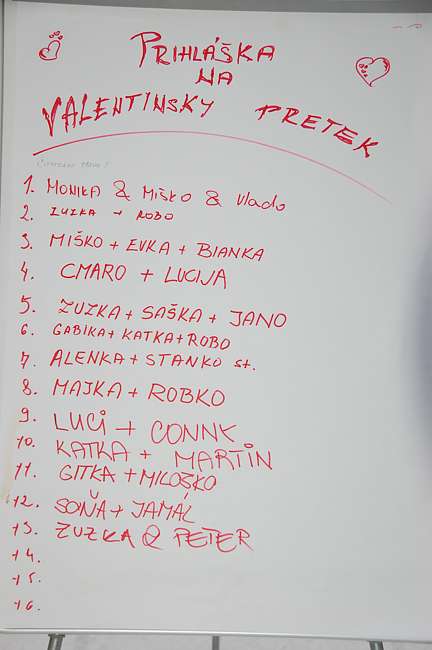 PRIHLÁŠKA
NA
VALENTÍNSKY PRETEK
1. MONIKA & MIŠKO & Vlado
2. ZUZKA + ROBO
3. MIŠKO + EVKA + BIANKA
4. CMARO + LUCIJA
5. ZUZKA + SAŠKA + JANO
6. GABIKA + KATKA + ROBO
7. ALENKA + STANKO st.
8. MAJKA + ROBKO
9. LUCI + CONNY
10. KATKA + MARTIN
11. GITKA + MILOŠKO
12. SOŇA + JAMAL
13. ZUZKA & PETER
14.
15.
16.